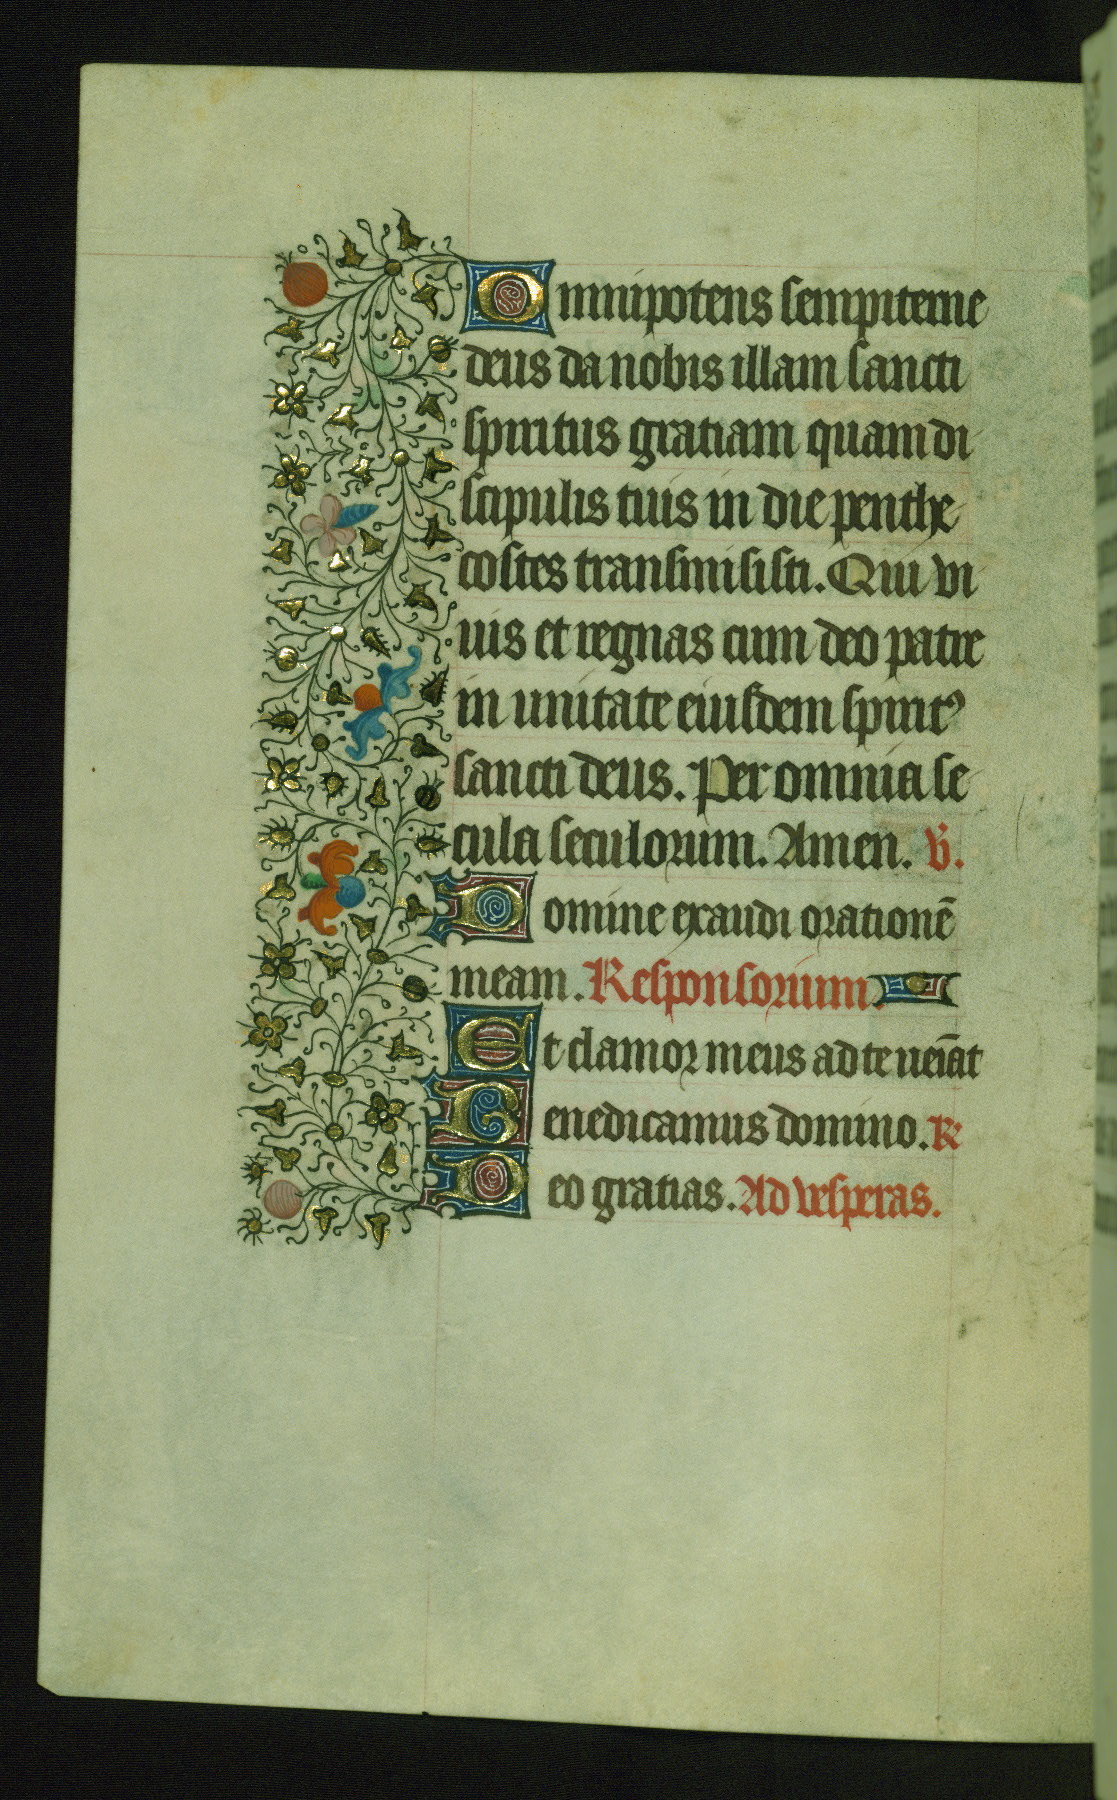 Omnipotens sempiterne
deus da nobis illam sancti
spiritus gratiam quam di
scipulis tuis in die penthe
costes transmisisti. Qui vi
uis et regnas cum deo patre
in unitate eiusdem spiritꝰ
sancti deus. Per omnia se
cula seculorum. Amen. V.
Domine exaudi orationē
meam. Responsorium
Et clamor meus ad te ueīat
Benedicamus domino. R
Deo gratias. Ad vesperas.